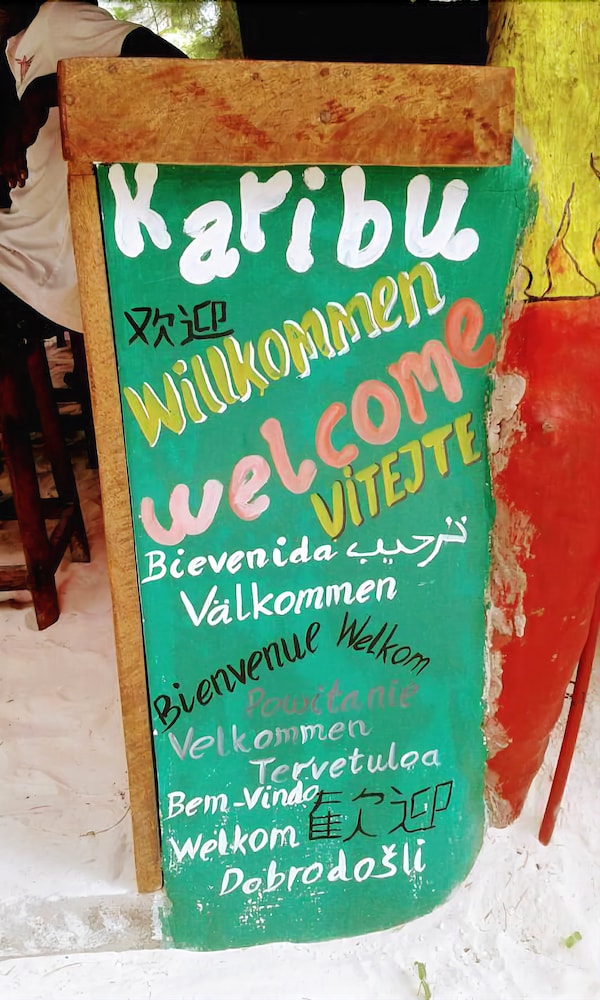 Karibu
欢迎
Willkommen
welcome
VİTEJTE
Bievenida ترحيب
Välkommen
Bienvenue Welkom
Powitanie
Velkommen
Tervetuloa
Bem-Vindo
歡迎
Welkom
Dobrodošli